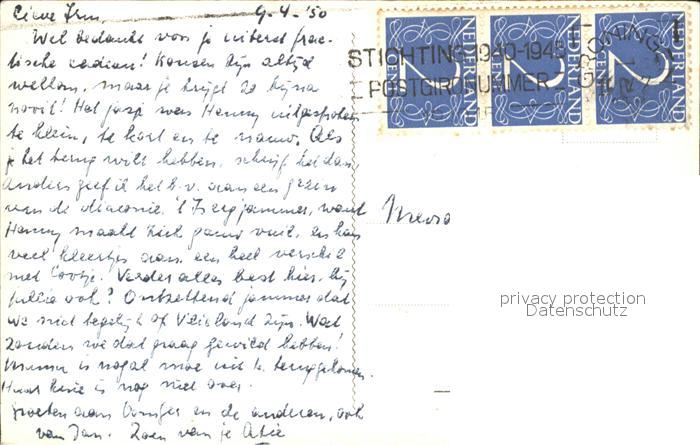 Lieve Irm, 4-4-'50
Wel bedankt voor je uiterst prac-
tische cadeau! Kousen zijn altijd
welkom, maar je krijgt ze bijna
nooit! Het jasje was Henny uitgesproken
te klein, te kort en te nauw. Als
je het terug wilt hebben, schrijf het dan,
anders geef ik het b.v. aan een gezin
van de diaconie. 't Is erg jammer, want
Henny maakt zich gauw vuil, en kan
veel kleertjes aan, een heel verschil
met Verder alles best hier, bij
jullie ook? Ontzettend jammer dat
we niet tegelijk op Vlieland zijn. Wat
zouden we dat graag gewild hebben!
is nogal moe uit teruggekomen.
Haar is nog niet over.
groeten aan en de anderen, ook
van Jan. Zoen van je Atie
STICHTING 1940-1945
POSTGIRONUMMER
GRONINGEN
NEDERLAND
2
NEDERLAND
2
NEDERLAND
2
Mevr
privacy protection
Datenschutz